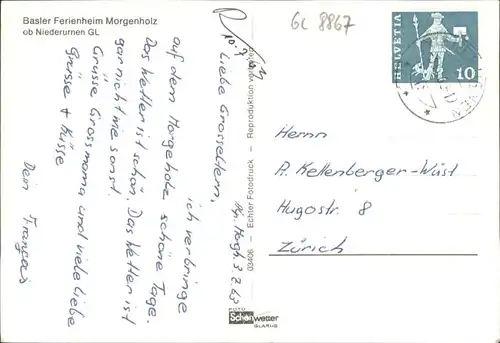 Basler Ferienheim Morgenholz
ob Niederurnen GL
GL 8867
HELVETIA
10
Liebe Grosseltern,
ich verbringe
auf dem Morgeholz schöne Tage.
Das Wetter ist schön. Das Wetter ist
gar nicht wie sonst.
Grüsse Grossmama und viele liebe
Grüsse + Küsse
Dein François
03406 - Echter Fotodruck - Reproduktion
FOTO
Schönwetter
GLARUS
Herrn
A. Kellenberger-Wüst
Hugostr. 8
Zürich